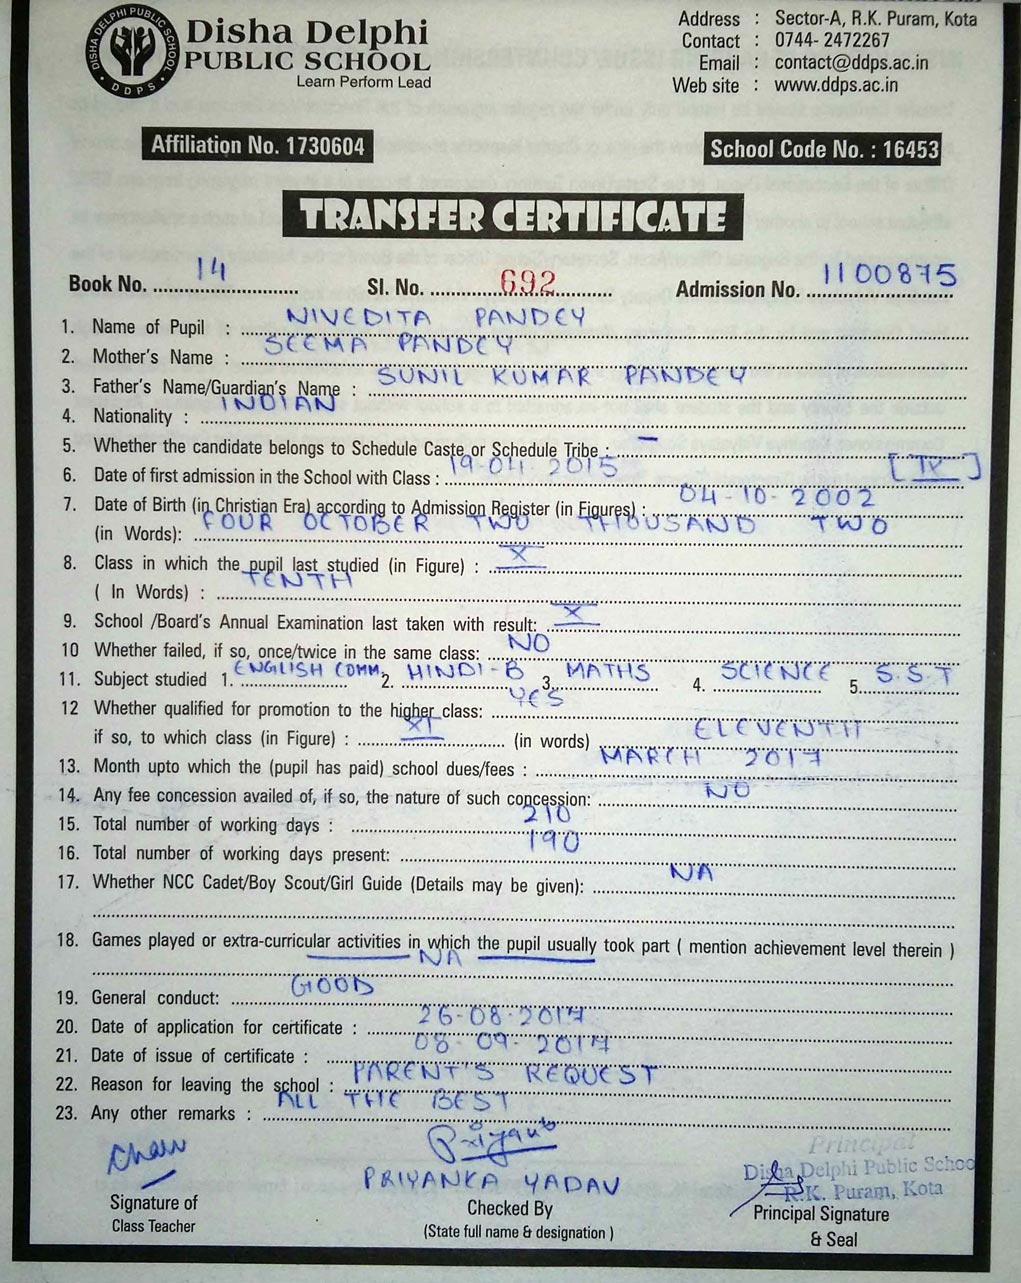 DISHA DELPHI PUBLIC SCHOOL
DDPS
Disha Delphi
PUBLIC SCHOOL
Learn Perform Lead
Address : Sector-A, R.K. Puram, Kota
Contact : 0744- 2472267
Email : contact@ddps.ac.in
Web site : www.ddps.ac.in
Affiliation No. 1730604
School Code No. : 16453
TRANSFER CERTIFICATE
Book No. 14 Sl. No. 692 Admission No. 1100875
1. Name of Pupil : NIVEDITA PANDEY
2. Mother's Name : SEEMA PANDEY
3. Father's Name/Guardian's Name : SUNIL KUMAR PANDEY
4. Nationality : INDIAN
5. Whether the candidate belongs to Schedule Caste or Schedule Tribe : —
6. Date of first admission in the School with Class : 19-04-2015 [IX]
7. Date of Birth (in Christian Era) according to Admission Register (in Figures) : 04-10-2002
(in Words): FOUR OCTOBER TWO THOUSAND TWO
8. Class in which the pupil last studied (in Figure) : X
( In Words) : TENTH
9. School /Board's Annual Examination last taken with result: X
10 Whether failed, if so, once/twice in the same class: NO
11. Subject studied 1. ENGLISH COMM. 2. HINDI-B 3. MATHS 4. SCIENCE 5. S.S.T
12 Whether qualified for promotion to the higher class: YES
if so, to which class (in Figure) : XI (in words) ELEVENTH
13. Month upto which the (pupil has paid) school dues/fees : MARCH 2017
14. Any fee concession availed of, if so, the nature of such concession: NO
15. Total number of working days : 210
16. Total number of working days present: 190
17. Whether NCC Cadet/Boy Scout/Girl Guide (Details may be given): NA
18. Games played or extra-curricular activities in which the pupil usually took part ( mention achievement level therein )
NA
19. General conduct: GOOD
20. Date of application for certificate : 26-08-2017
21. Date of issue of certificate : 08-09-2017
22. Reason for leaving the school : PARENT'S REQUEST
23. Any other remarks : ALL THE BEST
Principal
Disha Delphi Public School
R.K. Puram, Kota
PRIYANKA YADAV
Signature of
Class Teacher
Checked By
(State full name & designation )
Principal Signature
& Seal